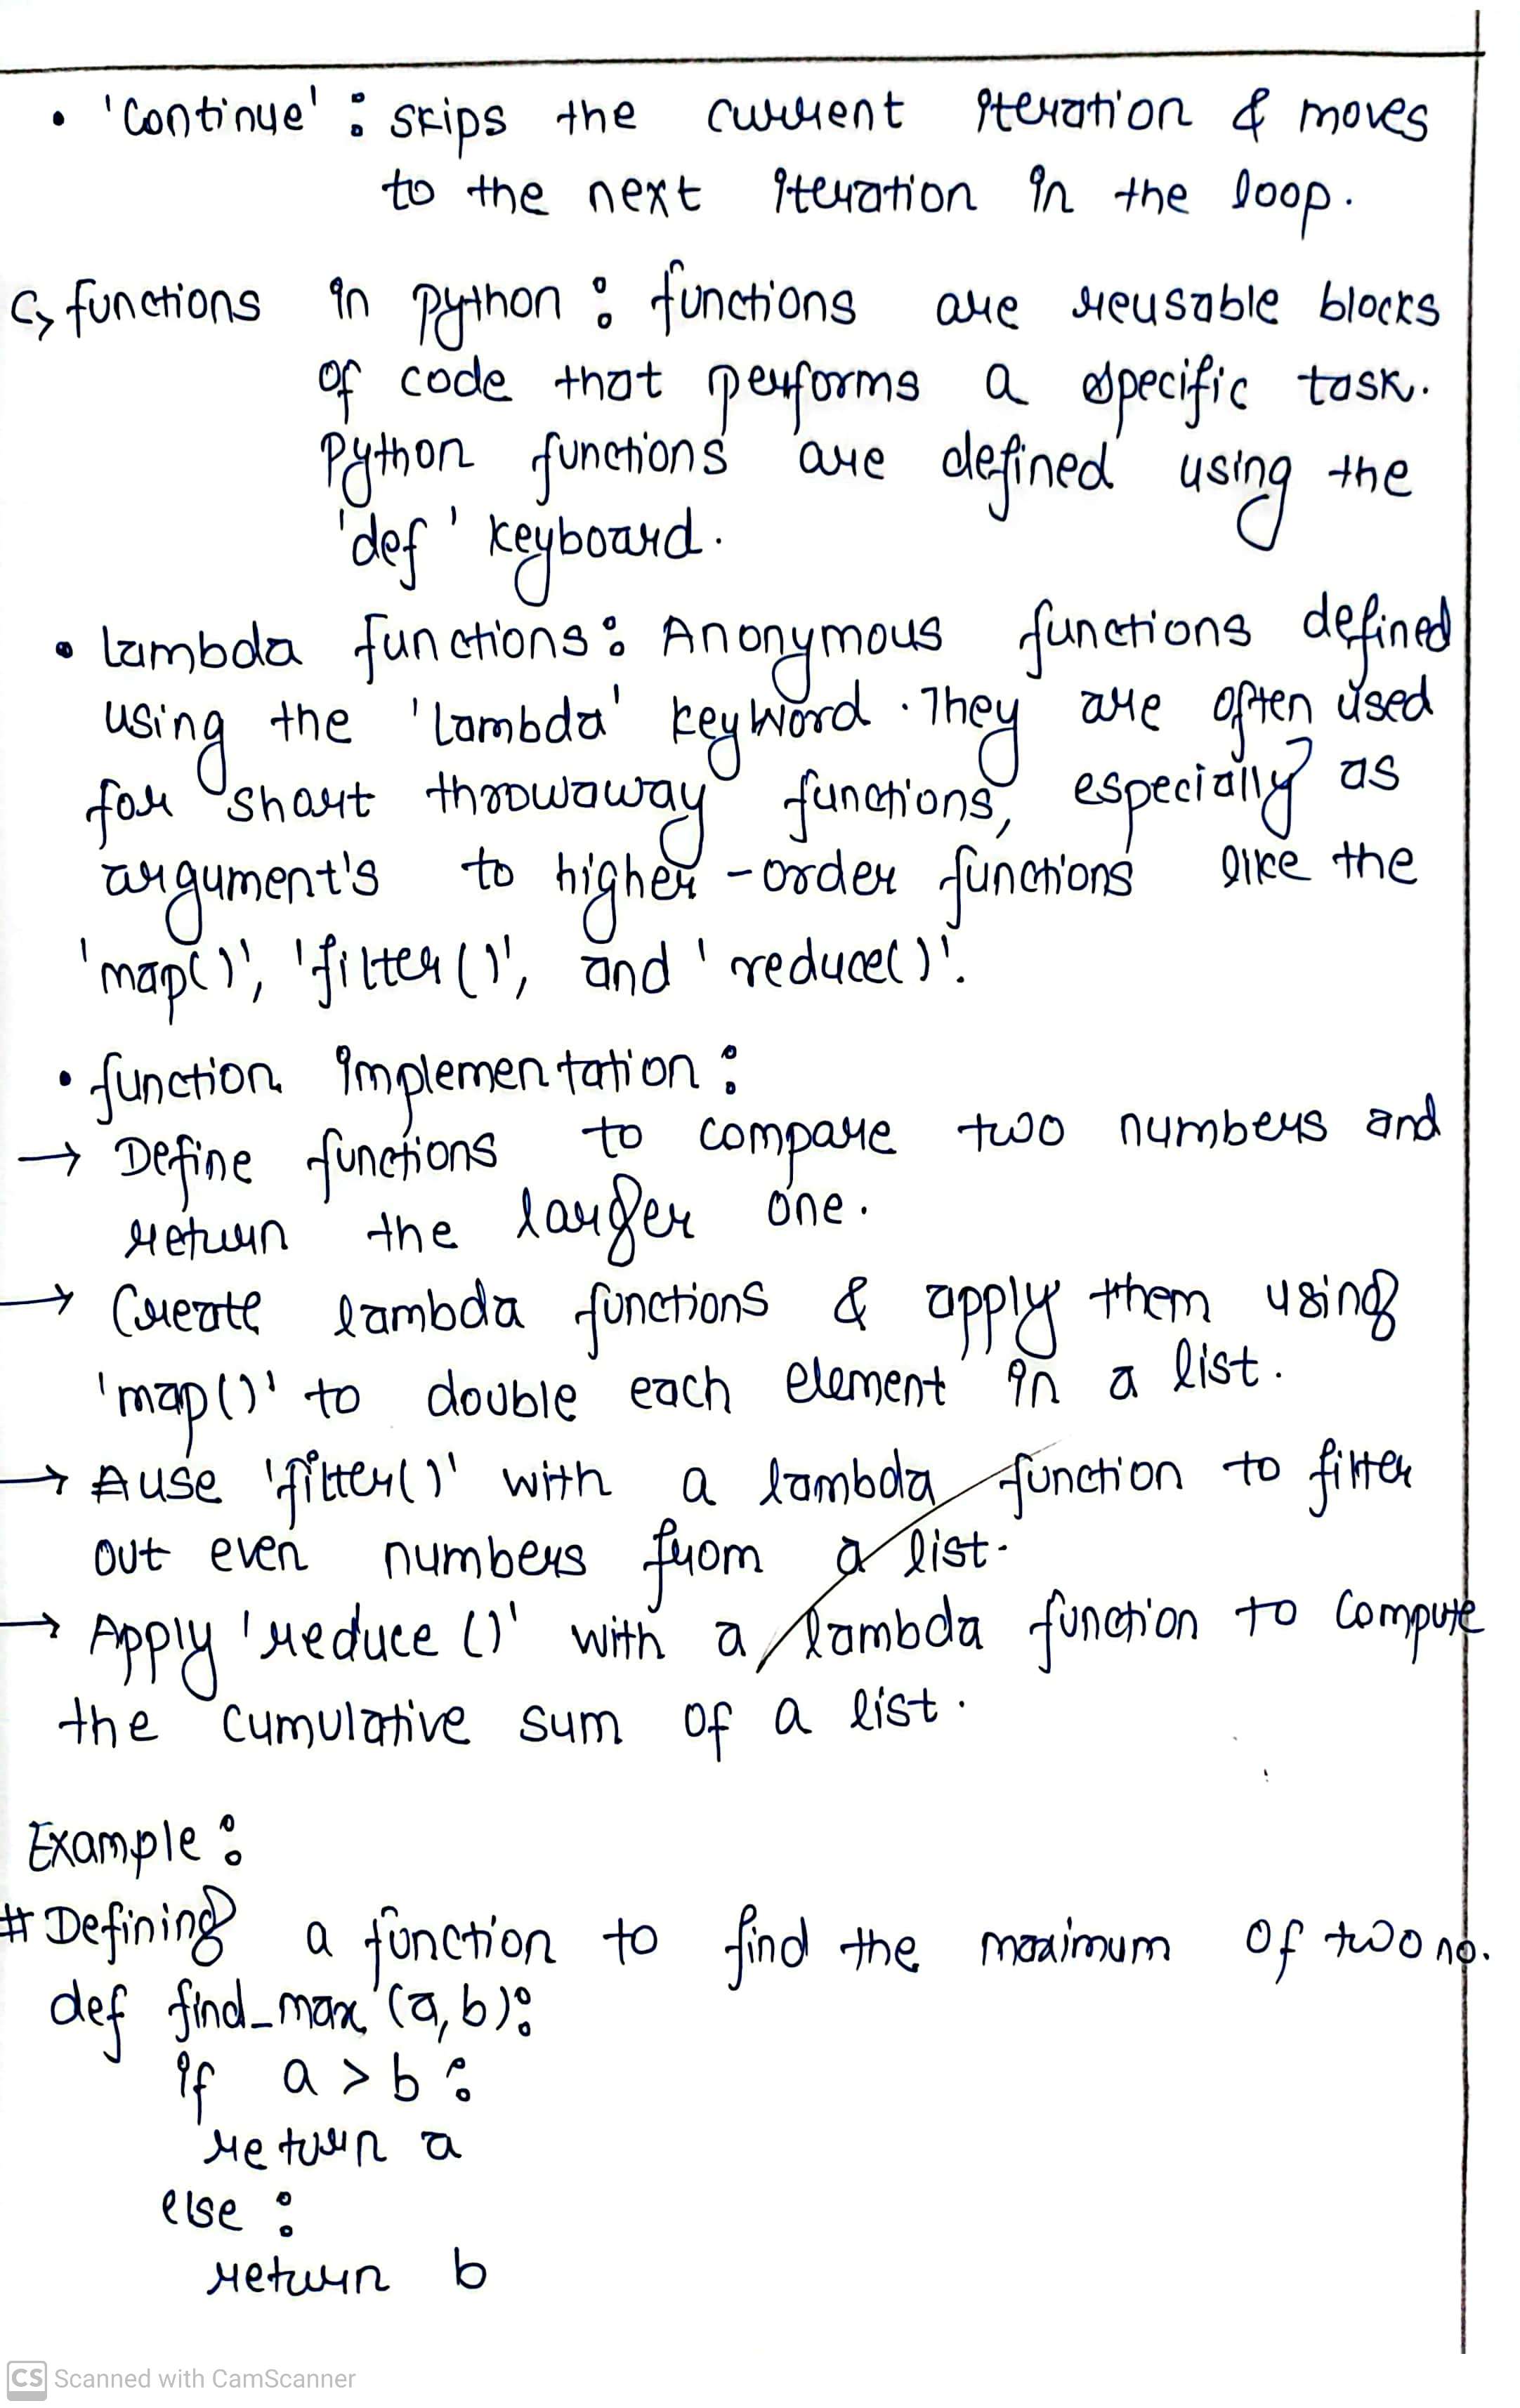 • 'Continue' : skips the current iteration & moves
to the next iteration in the loop.
C, functions in python : functions are reusable blocks
of code that performs a specific task.
Python functions are defined using the
'def' keyboard.
• lambda functions: Anonymous functions defined
using the 'lambda' keyword. They are often used
for short throwaway functions, especially as
argument's to higher-order functions like the
'map()', 'filter()', and 'reduce()'.
• function implementation :
→ Define functions to compare two numbers and
return the larger one.
→ Create lambda functions & apply them using
'map()' to double each element in a list.
→ Ause 'filter()' with a lambda function to filter
out even numbers from a list.
→ Apply 'reduce ()' with a lambda function to compute
the cumulative sum of a list.
Example :
# Defining a function to find the maximum of two no.
def find_max (a,b):
if a > b :
return a
else :
return b
CS Scanned with CamScanner